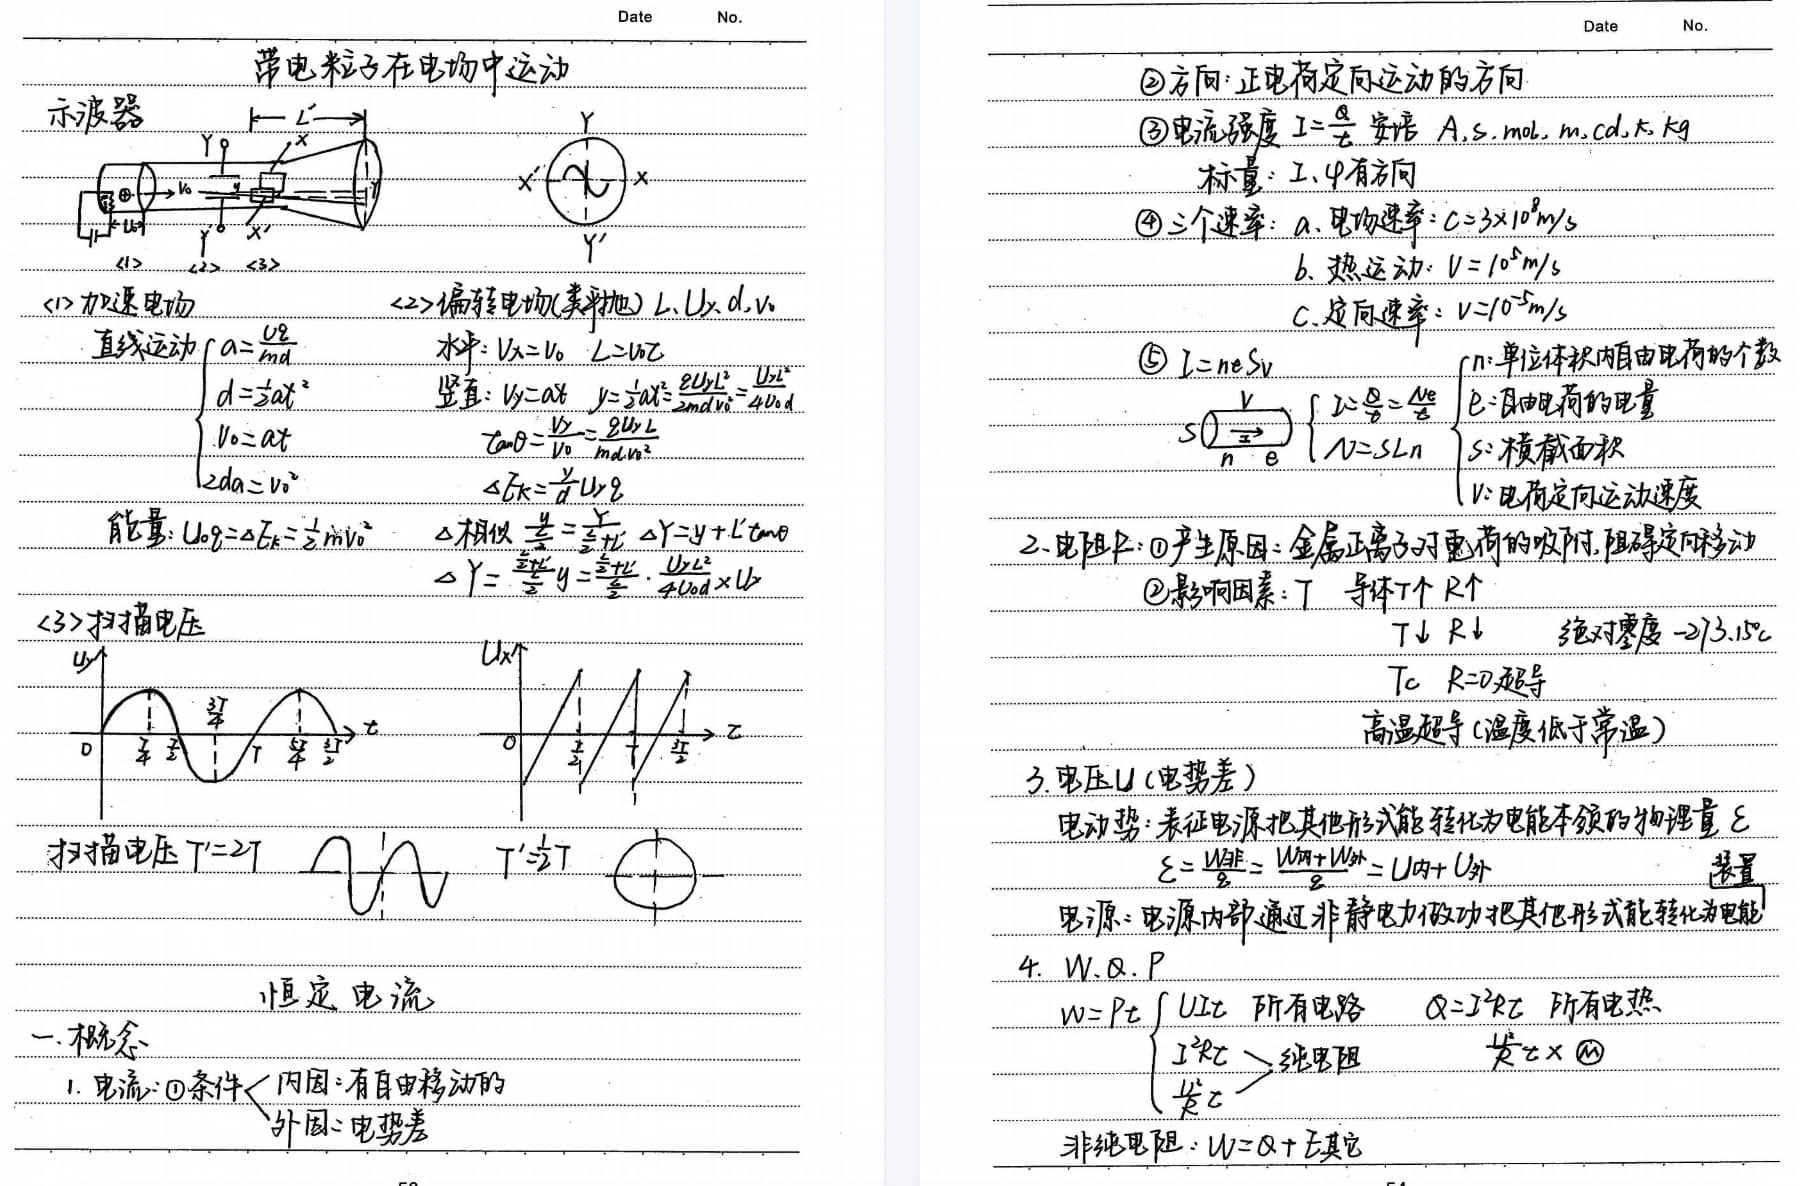 Date No.
带电粒子在电场中运动
示波器
L'
Y X
Y
X' X
⊕ V₀ y Y
U₀
Y' X'
Y'
<1> <2> <3>
<1>加速电场
直线运动 { a=Uq/md
d=½at²
V₀=at
2da=V₀²
能量: U₀q=△Ek=½mV₀²
<2>偏转电场(类平抛) L、Uy、d、V₀
水平: Vx=V₀ L=V₀t
竖直: Vy=at y=½at²=qUyL²/2mdV₀²=UyL²/4U₀d
tanθ=Vy/V₀=qUyL/mdV₀²
△Ek=y/d Uyq
△相似 y/(L/2)=Y/(L/2+L') △Y=y+L'tanθ
△Y=(L/2+L')/(L/2) y=(L/2+L')/(L/2)·UyL²/4U₀d ×Uy
<3>扫描电压
Uy
0 T/4 T/2 3T/4 T 5T/4 3T/2 t
Ux
0 T/2 T 3T/2 t
扫描电压 T'=2T T'=½T
恒定电流
一.概念
1. 电流: ①条件 < 内因: 有自由移动的
外因: 电势差
Date No.
②方向: 正电荷定向运动的方向
③电流强度 I=Q/t 安培 A、s、mol、m、cd、K、kg
标量: I、φ有方向
④三个速率: a、电场速率: C=3×10⁸m/s
b. 热运动: V=10⁵m/s
C、定向速率: V=10⁻⁵m/s
⑤ I=neSv
V
S I
n e
{ I=Q/t=Ne/t
N=SLn
{ n: 单位体积内自由电荷的个数
e: 自由电荷的电量
S: 横截面积
V: 电荷定向运动速度
2、电阻R: ①产生原因: 金属正离子对电荷的吸附.阻碍定向移动
②影响因素: T 导体T↑ R↑
T↓ R↓ 绝对零度 -273.15℃
Tc R=0超导
高温超导(温度低于常温)
3. 电压U(电势差)
电动势: 表征电源把其他形式能转化为电能本领的物理量 ε
ε=W非/q=(W内+W外)/q=U内+U外
装置
电源: 电源内部通过非静电力做功把其他形式能转化为电能
4. W、Q、P
W=Pt { UIt 所有电路 Q=I²Rt 所有电热
I²Rt > 纯电阻 U²/R t × Ⓜ
U²/R t
非纯电阻: W=Q+E其它